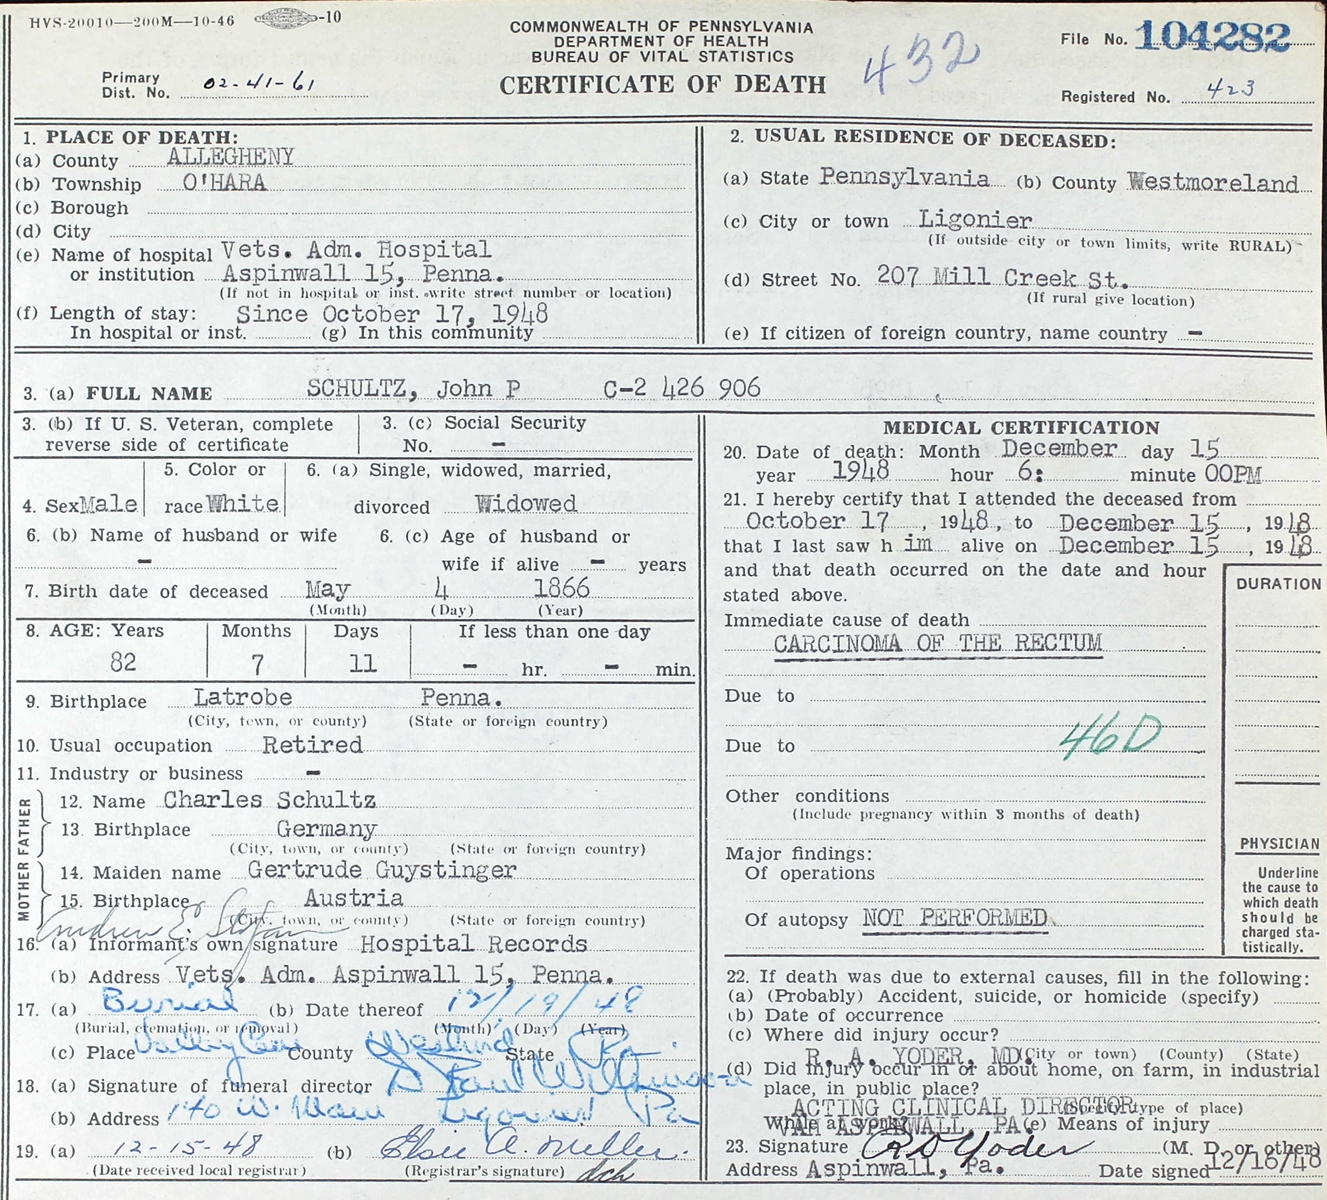 HVS-20010—200M—10-46 -10
COMMONWEALTH OF PENNSYLVANIA
DEPARTMENT OF HEALTH
BUREAU OF VITAL STATISTICS
CERTIFICATE OF DEATH
432
File No. 104282
Primary
Dist. No. 02-41-61
Registered No. 423
1. PLACE OF DEATH:
(a) County ALLEGHENY
(b) Township O'HARA
(c) Borough
(d) City
(e) Name of hospital Vets. Adm. Hospital
or institution Aspinwall 15, Penna.
(If not in hospital or inst. write street number or location)
(f) Length of stay: Since October 17, 1948
In hospital or inst. (g) In this community
2. USUAL RESIDENCE OF DECEASED:
(a) State Pennsylvania (b) County Westmoreland
(c) City or town Ligonier
(If outside city or town limits, write RURAL)
(d) Street No. 207 Mill Creek St.
(If rural give location)
(e) If citizen of foreign country, name country -
3. (a) FULL NAME SCHULTZ, John P C-2 426 906
3. (b) If U. S. Veteran, complete
reverse side of certificate
3. (c) Social Security
No. -
4. Sex Male
5. Color or
race White
6. (a) Single, widowed, married,
divorced Widowed
6. (b) Name of husband or wife
-
6. (c) Age of husband or
wife if alive - years
7. Birth date of deceased May 4 1866
(Month) (Day) (Year)
8. AGE: Years Months Days If less than one day
82 7 11 - hr. - min.
9. Birthplace Latrobe Penna.
(City, town, or county) (State or foreign country)
10. Usual occupation Retired
11. Industry or business -
FATHER
12. Name Charles Schultz
13. Birthplace Germany
(City, town, or county) (State or foreign country)
MOTHER
14. Maiden name Gertrude Guystinger
15. Birthplace Austria
(City, town, or county) (State or foreign country)
Andrew E.
16. (a) Informant's own signature Hospital Records
(b) Address Vets. Adm. Aspinwall 15, Penna.
17. (a) Burial (b) Date thereof 12/19/48
(Burial, cremation, or removal) (Month) (Day) (Year)
(c) Place Valley Cem County Westmd State Pa.
18. (a) Signature of funeral director D Paul Wilkinson
(b) Address 140 W. Main Ligonier Pa
19. (a) 12-15-48 (b) Elsie A. Miller.
(Date received local registrar) (Registrar's signature) dch
MEDICAL CERTIFICATION
20. Date of death: Month December day 15
year 1948 hour 6: minute 00PM
21. I hereby certify that I attended the deceased from
October 17, 1948, to December 15, 1948
that I last saw him alive on December 15, 1948
and that death occurred on the date and hour
stated above.
DURATION
Immediate cause of death
CARCINOMA OF THE RECTUM
Due to
Due to 46D
Other conditions
(Include pregnancy within 3 months of death)
Major findings:
Of operations
Of autopsy NOT PERFORMED
PHYSICIAN
Underline
the cause to
which death
should be
charged sta-
tistically.
22. If death was due to external causes, fill in the following:
(a) (Probably) Accident, suicide, or homicide (specify)
(b) Date of occurrence
(c) Where did injury occur?
R. A. YODER, MD (City or town) (County) (State)
(d) Did injury occur in or about home, on farm, in industrial
place, in public place?
ACTING CLINICAL DIRECTOR (Specify type of place)
While at work? VAH ASPINWALL, PA. (e) Means of injury
23. Signature R A Yoder (M. D. or other)
Address Aspinwall, Pa. Date signed 12/16/48